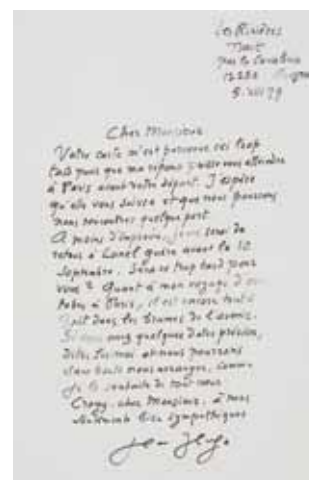 Cher Monsieur
Votre carte m'est parvenue ici trop
tard pour que ma réponse puisse vous atteindre
à Paris avant votre départ. J'espère
qu'elle vous suivra et que nous pourrons
nous rencontrer quelque part.
A moins d'imprévu, je ne serai de
retour à Lunel guère avant le 10
septembre. Sera-ce trop tard pour
vous ? Quant à mon voyage d'
à Paris, il est encore tout à
fait dans les brumes de l'avenir.
Si vous avez quelques dates précises,
dites-les moi et nous pourrons
sans doute nous arranger, comme
je le souhaite de tout cœur.
Croyez, cher Monsieur, à mes
sentiments bien sympathiques
Jean Hugo